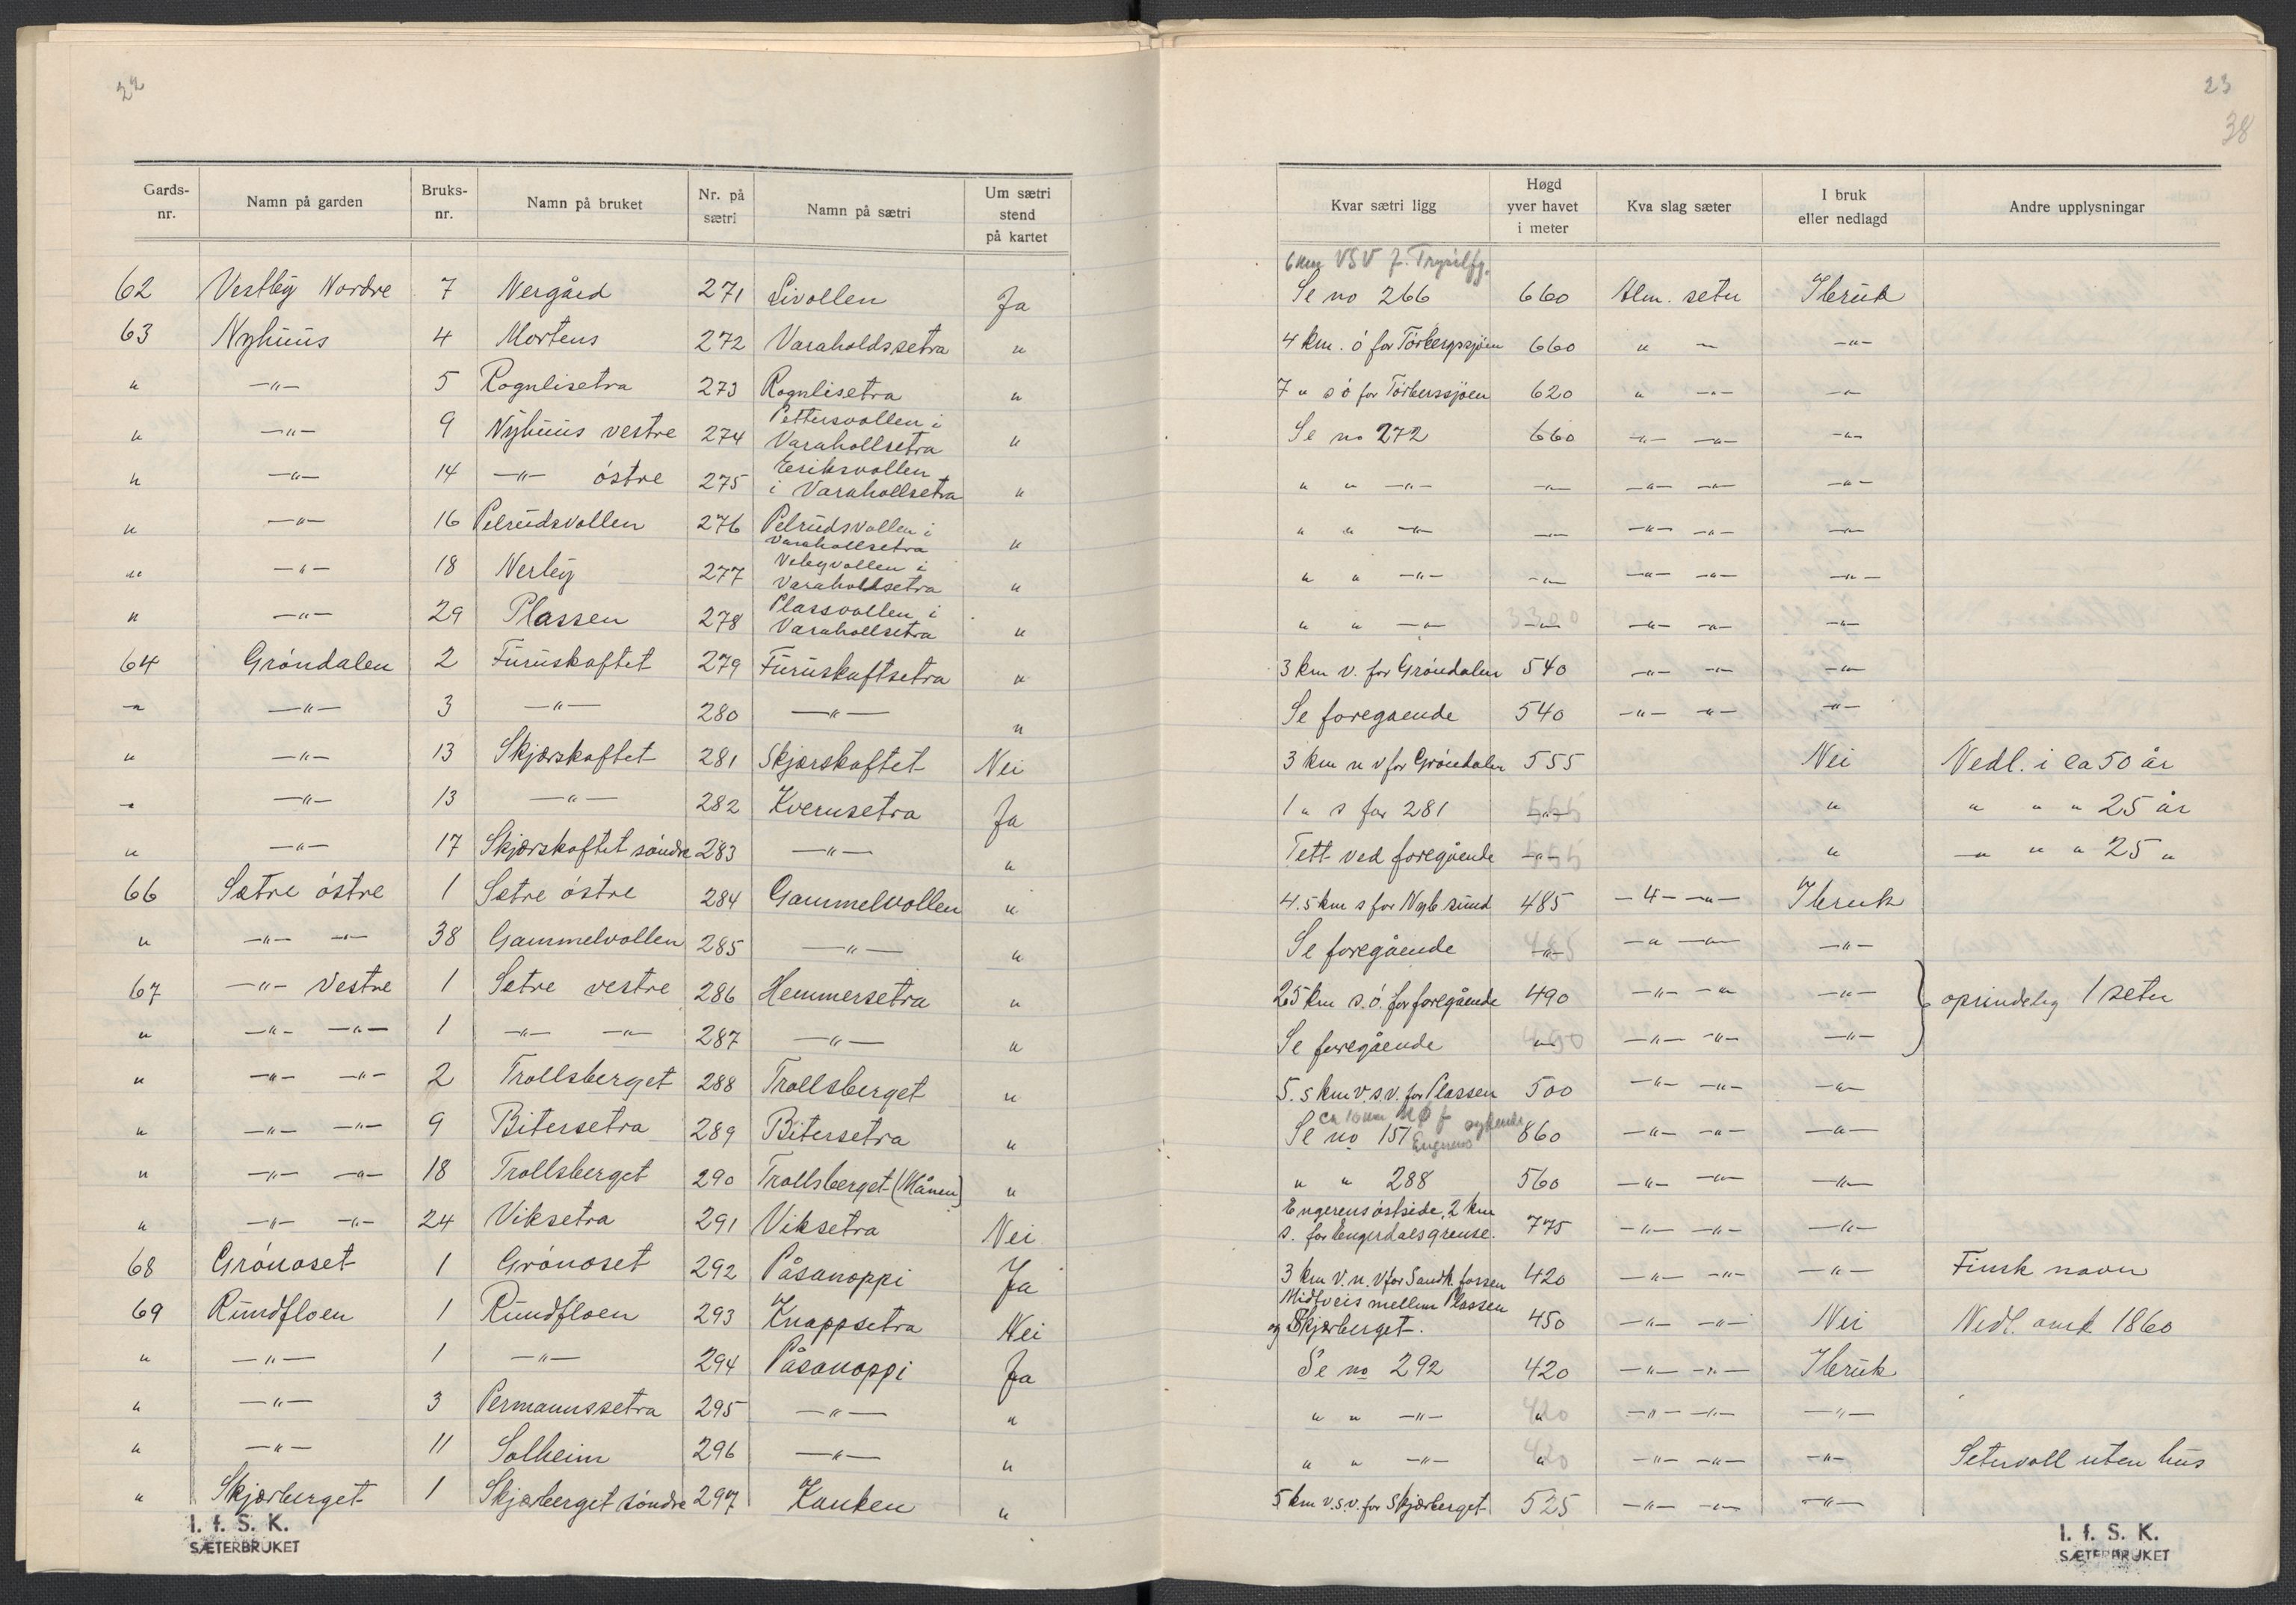 22
Gards-nr. Namn på garden Bruks-nr. Namn på bruket Nr. på sætri Namn på sætri Um sætri stend på kartet
62 Vestby Nordre 7 Nergård 271 Livollen Ja
63 Nyhuus 4 Mortens 272 Varaholdssetra "
" —"— 5 Rognlisetra 273 Rognlisetra "
" —"— 9 Nyhuus vestre 274 Pettersvollen i Varahollsetra "
" —"— 14 —"— östre 275 Eriksvollen i Varahollsetra "
" —"— 16 Pelrudsvollen 276 Pelrudsvollen i Varahollsetra "
" —"— 18 Nerby 277 Vebyvollen i Varaholdsetra "
" —"— 29 Plassen 278 Plassvollen i Varahollsetra "
64 Gröndalen 2 Furuskaftet 279 Furuskaftsetra "
" —"— 3 —"— 280 —"— "
" —"— 13 Skjærskaftet 281 Skjærskaftet Nei
" —"— 13 —"— 282 Kvernsetra Ja
" —"— 17 Skjærskaftet söndre 283 —"— "
66 Sætre östre 1 Sætre östre 284 Gammelvollen "
" —"— —"— 38 Gammelvollen 285 —"— "
67 —"— Vestre 1 Setre vestre 286 Hemmersetra "
" —"— —"— 1 —"— —"— 287 —"— "
" —"— —"— 2 Trollsberget 288 Trollsberget "
" —"— —"— 9 Bitersetra 289 Bitersetra "
" —"— —"— 18 Trollsberget 290 Trollsberget (Månen) "
" —"— —"— 24 Viksetra 291 Viksetra Nei
68 Grönoset 1 Grönoset 292 Påsanoppi Ja
69 Rundfloen 1 Rundfloen 293 Knappsetra Nei
" —"— 1 —"— 294 Påsanoppi Ja
" —"— 3 Permannssetra 295 —"— "
" —"— 11 Solheim 296 —"— "
" Skjærberget 1 Skjærberget söndre 297 Kanken "
I. f. S. K.
SÆTERBRUKET
23
38
Kvar sætri ligg Høgd yver havet i meter Kva slag sæter I bruk eller nedlagd Andre upplysningar
6 km VSV f. Trysilfj.
Se no 266 660 Alm. seter I bruk
4 km. ö for Törbergssjöen 660 " " —"—
7 " s ö for Törberssjöen 620 " —"— —"—
Se no 272 660 —"— —"— —"—
" " —"— —"— —"— —"— —"—
" " —"— —"— —"— —"— —"—
" " —"— —"— —"— —"— —"—
" " —"— —"— —"— —"— —"—
3 km v. for Gröndalen 540 —"— —"— —"—
Se foregaende 540 —"— —"— —"—
3 km n v for Gröndalen 555 Nei Nedl. i ca 50 år
1 " s for 281 —"— " " " " 25 år
Tett ved foregående —"— " " " " 25 "
4.5 km s for Nyb.sund 485 —"— —"— I bruk
Se foregående —"— —"— —"— —"—
2.5 km s.ö. for foregående 490 —"— —"— —"— oprindelig 1 seter
Se foregående " —"— —"— —"—
5.5 km v.s.v. for Plassen 500 —"— —"— —"—
ca 10 km NØ f Engerens
Se no 151 860 —"— —"— —"—
" " 288 560 —"— —"— —"—
Engerens östside, 2 km
s. for Engerdalsgrense. 775 —"— —"— —"—
3 km v.n.v for Sandk.fossen 420 —"— —"— —"— Finsk navn
Midtveis mellem Plassen
og Skjærberget. 450 —"— —"— Nei Nedl. omk 1860
Se no 292 420 —"— —"— I bruk
" " —"— " 420 —"— —"— —"—
" " —"— " 420 —"— —"— —"— Setervoll uten hus
5 km v.s.v. for Skjærberget 525 —"— —"— —"—
I. f. S. K.
SÆTERBRUKET